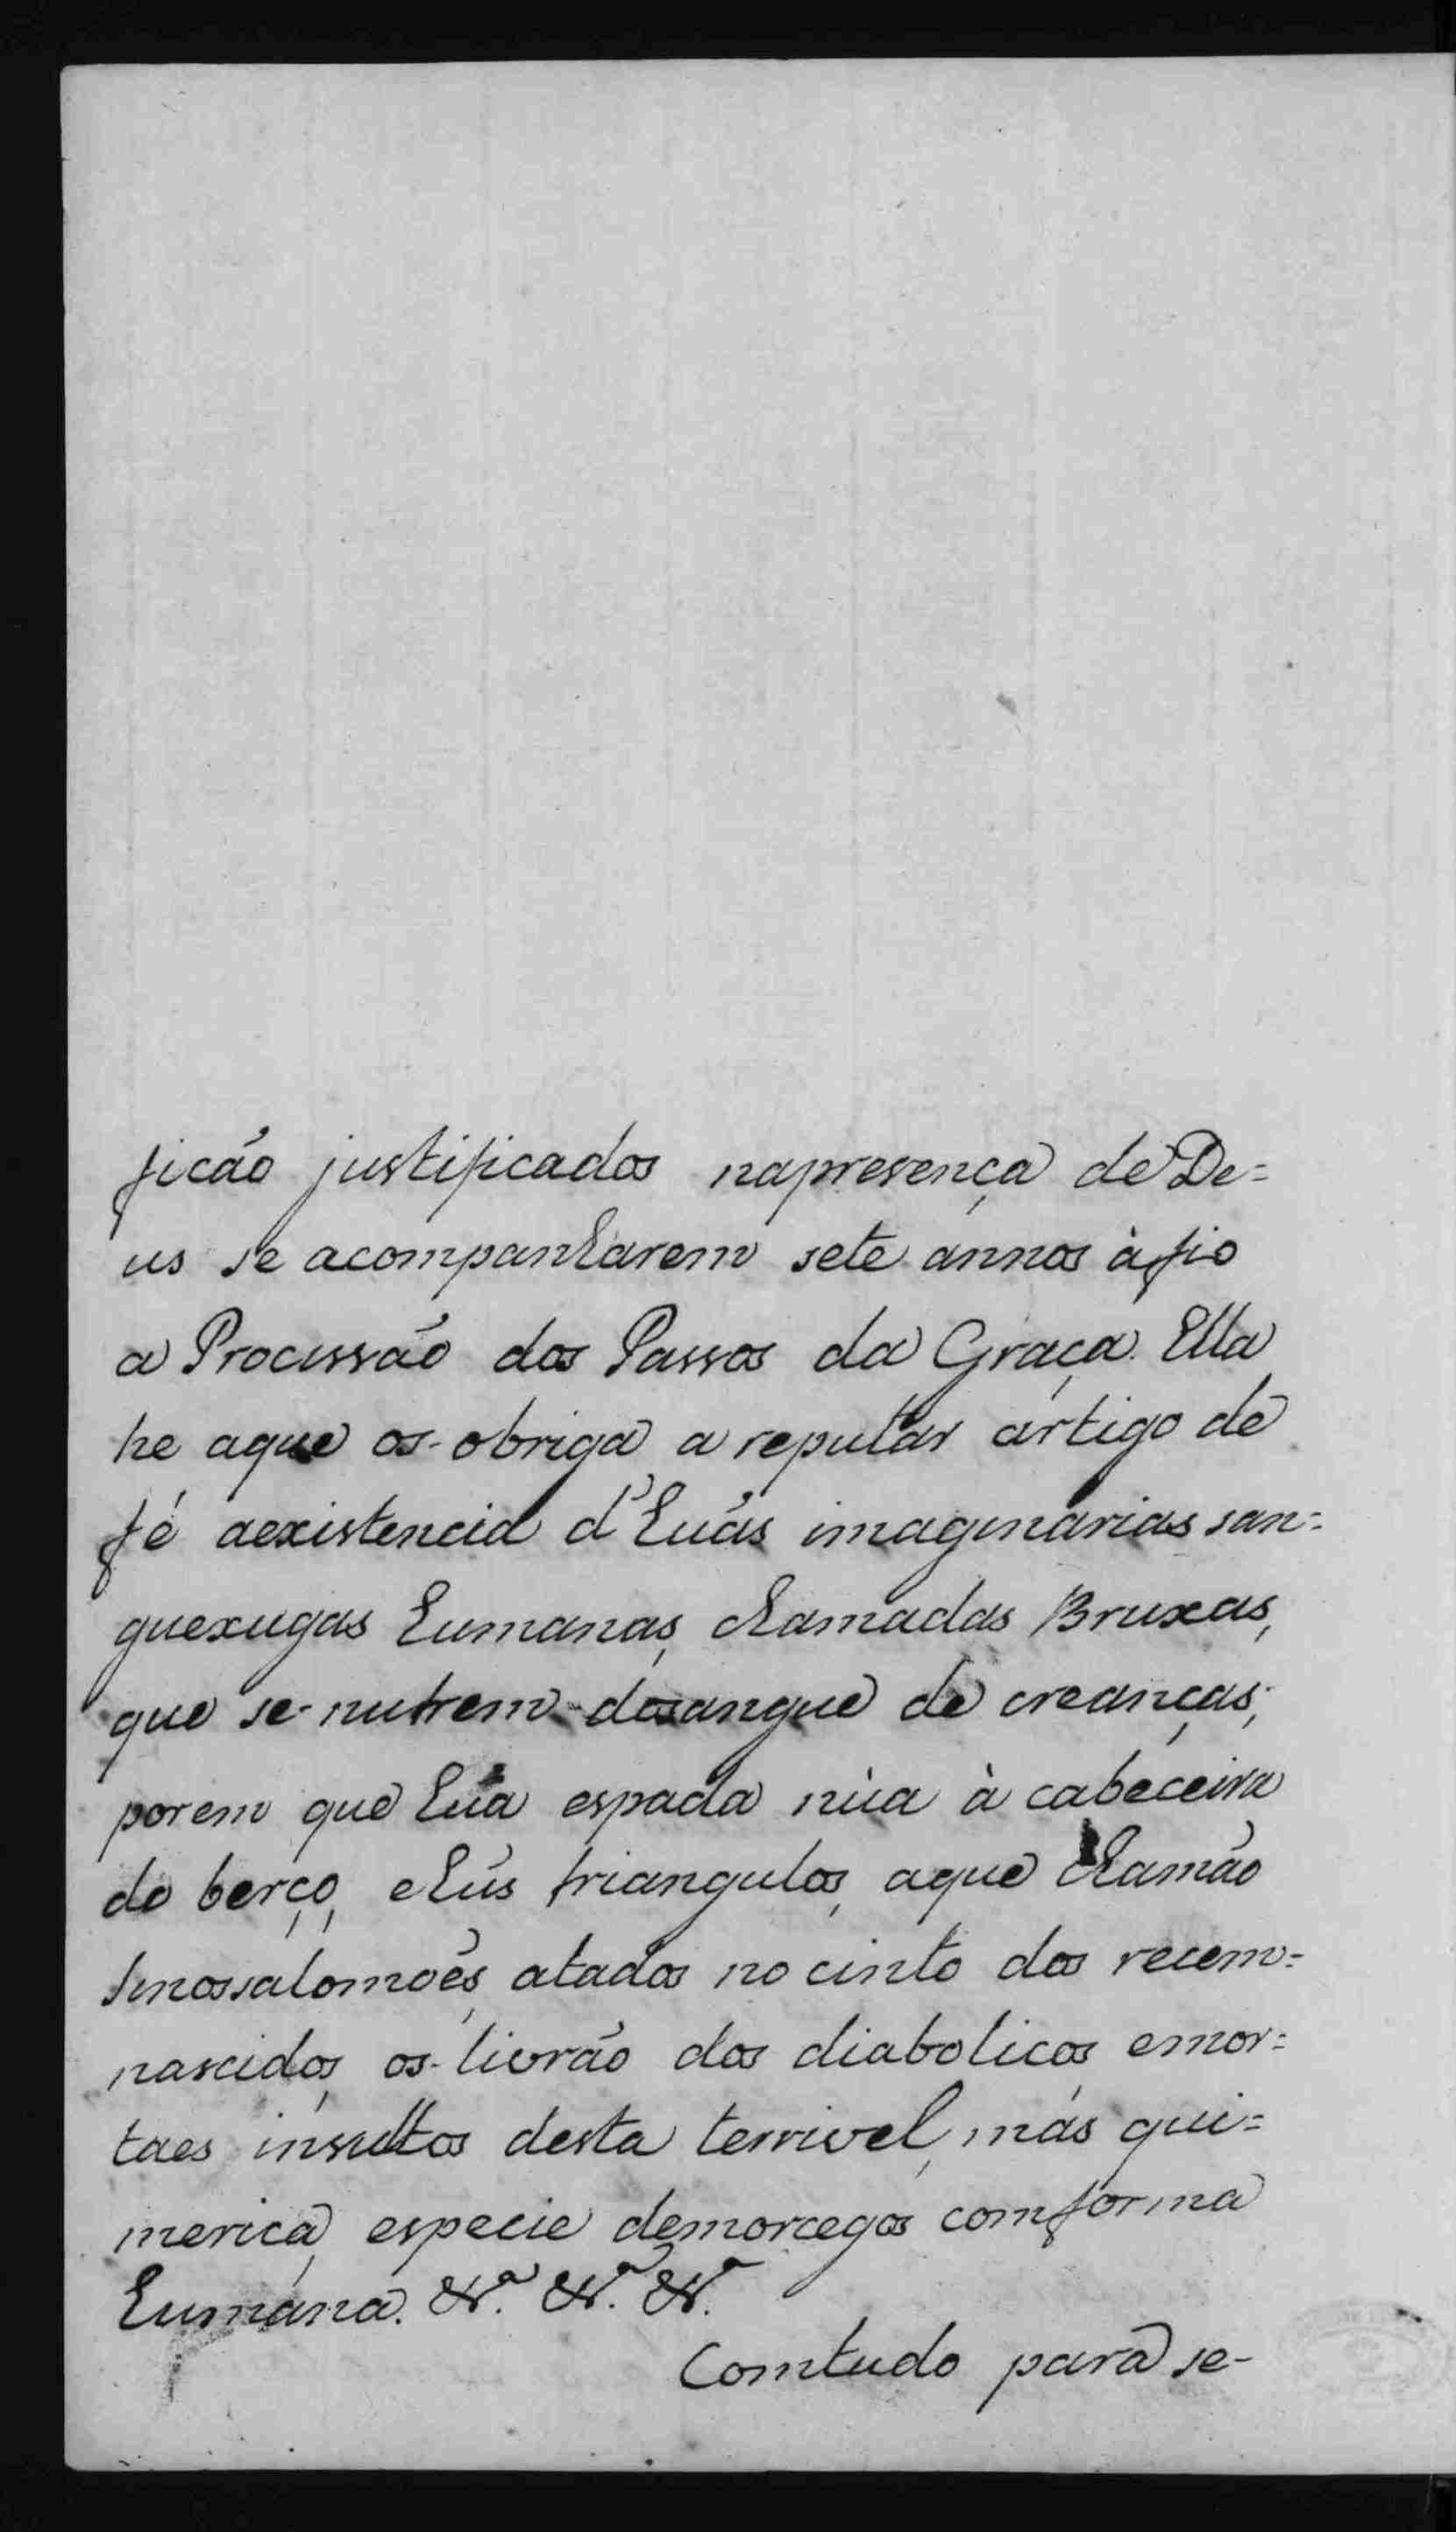 ficão justificados napresença de De=
us se acompanharem sete annos àfio
a Procissão dos Passos da Graça. Ella
he aque os-obriga a reputar artigo de
fé aexistencia d'huãs imaginarias san=
guexugas humanas, chamadas Bruxas,
que se-nutrem-dosangue de creanças;
porem que huã espada nùa à cabeceira
do berço, ehũs triangulos, aque chamão
sinossalomoẽs, atados no cinto dos recem=
nascidos, os-livrão dos diabolicos emor=
taes insultos desta terrivel, más qui=
merica, especie demorcegos comforma
humana. &ª. &ª. &ª.
Comtudo para se-